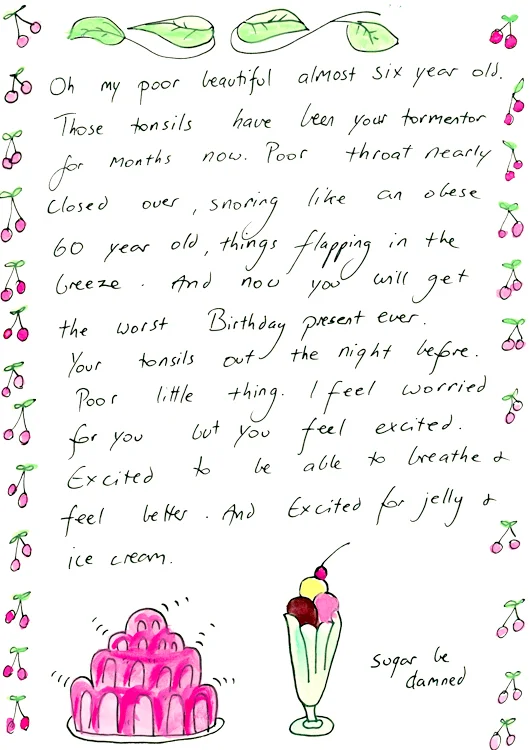 Oh my poor beautiful almost six year old.
Those tonsils have been your tormentor
for months now. Poor throat nearly
closed over, snoring like an obese
60 year old, things flapping in the
breeze. And now you will get
the worst Birthday present ever.
Your tonsils out the night before.
Poor little thing. I feel worried
for you but you feel excited.
Excited to be able to breathe &
feel better. And Excited for jelly &
ice cream.
sugar be
damned